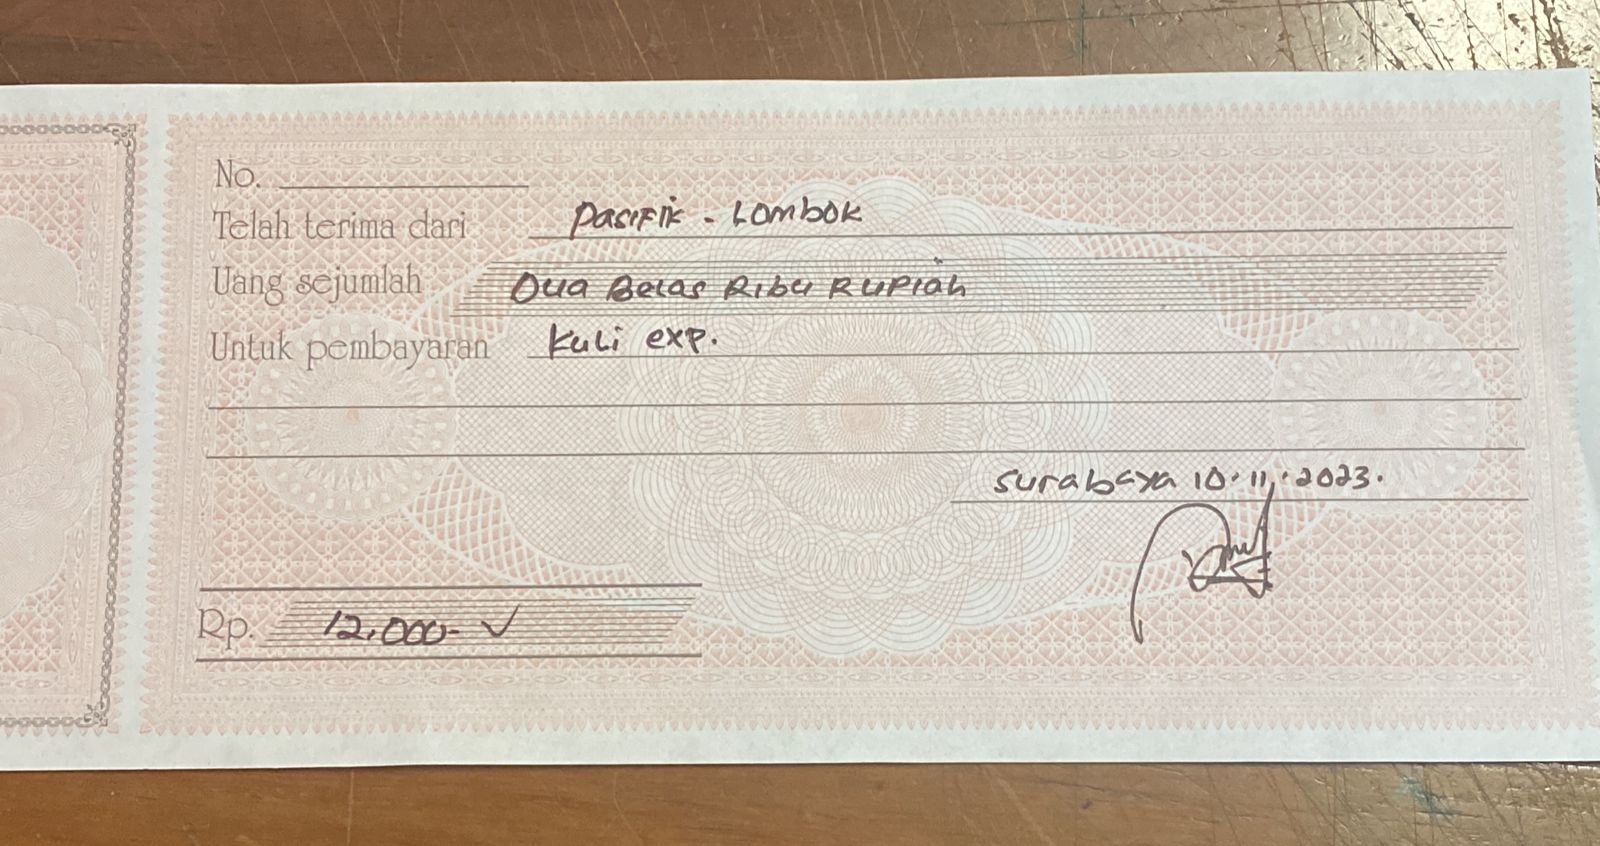 No.
Telah terima dari Pasifik - Lombok
Uang sejumlah Dua Belas Ribu Rupiah
Untuk pembayaran Kuli exp.
Surabaya 10.11.2023.
Rp. 12.000-